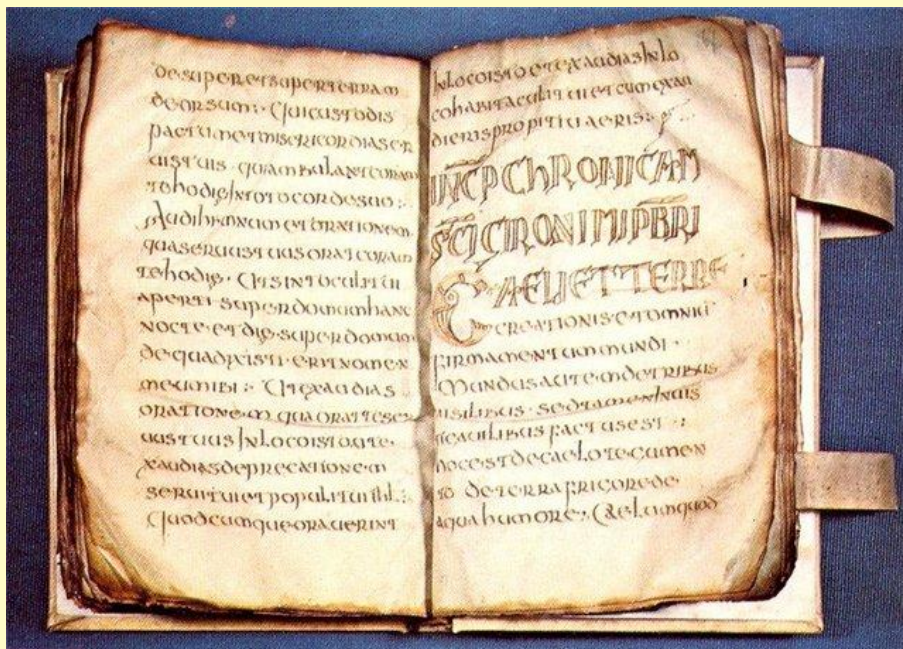 desuper et super terram
deorsum :· Qui custodis
pactum et misericordia ser
uis tuis · qui ambulant coram
te hodie In toto corde suo :·
Audi hymnum et orationem
qua seruus tuus orat coram
te hodie · Ut sint oculi tui
aperti · super domum hanc
nocte · et die · super domum
de qua dixisti · erit nomen
meum ibi :· Ut exaudias
oratione m qua orat te ser
uus tuus In loco isto ut e
xaudias deprecatione m
serui tui et populi tui ihl :·
Quodcumque orauerint
In loco isto et exaudias In lo
co habitaculi tui et cum exau
dieris propitiu aeris :·
INCP CHRONICAM
SCI CIRONIMI PBRI
CAELI ET TERRE
CREATIONIS · et omniu
firmamentum mundi ·
Mundus aute m de tribus
uisilibus · sed tamen Inuis
factus est :·
hoc est de caelo tegumen
to de terra frigore de
aqua humore :· Caelum quod